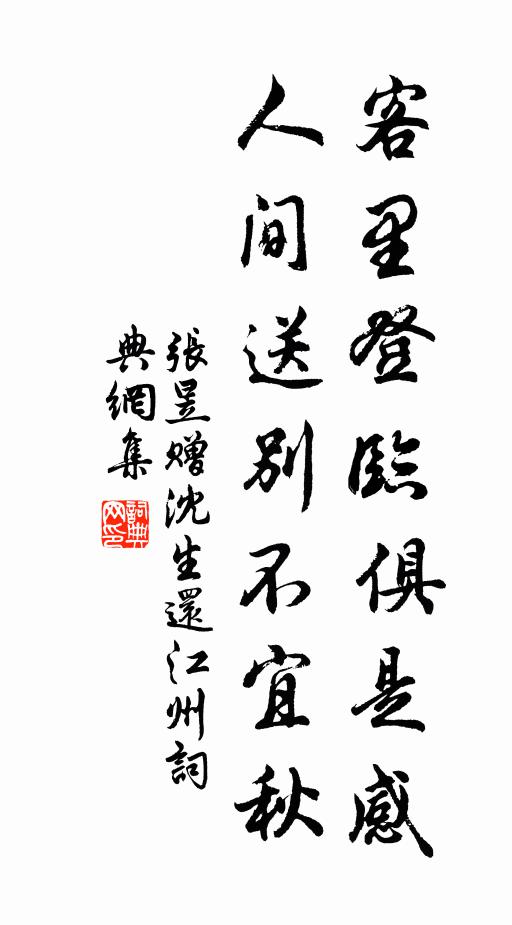 客里登臨俱是感
人間送別不宜秋
張昱贈沈生還江州詞
典網集
詞典网印